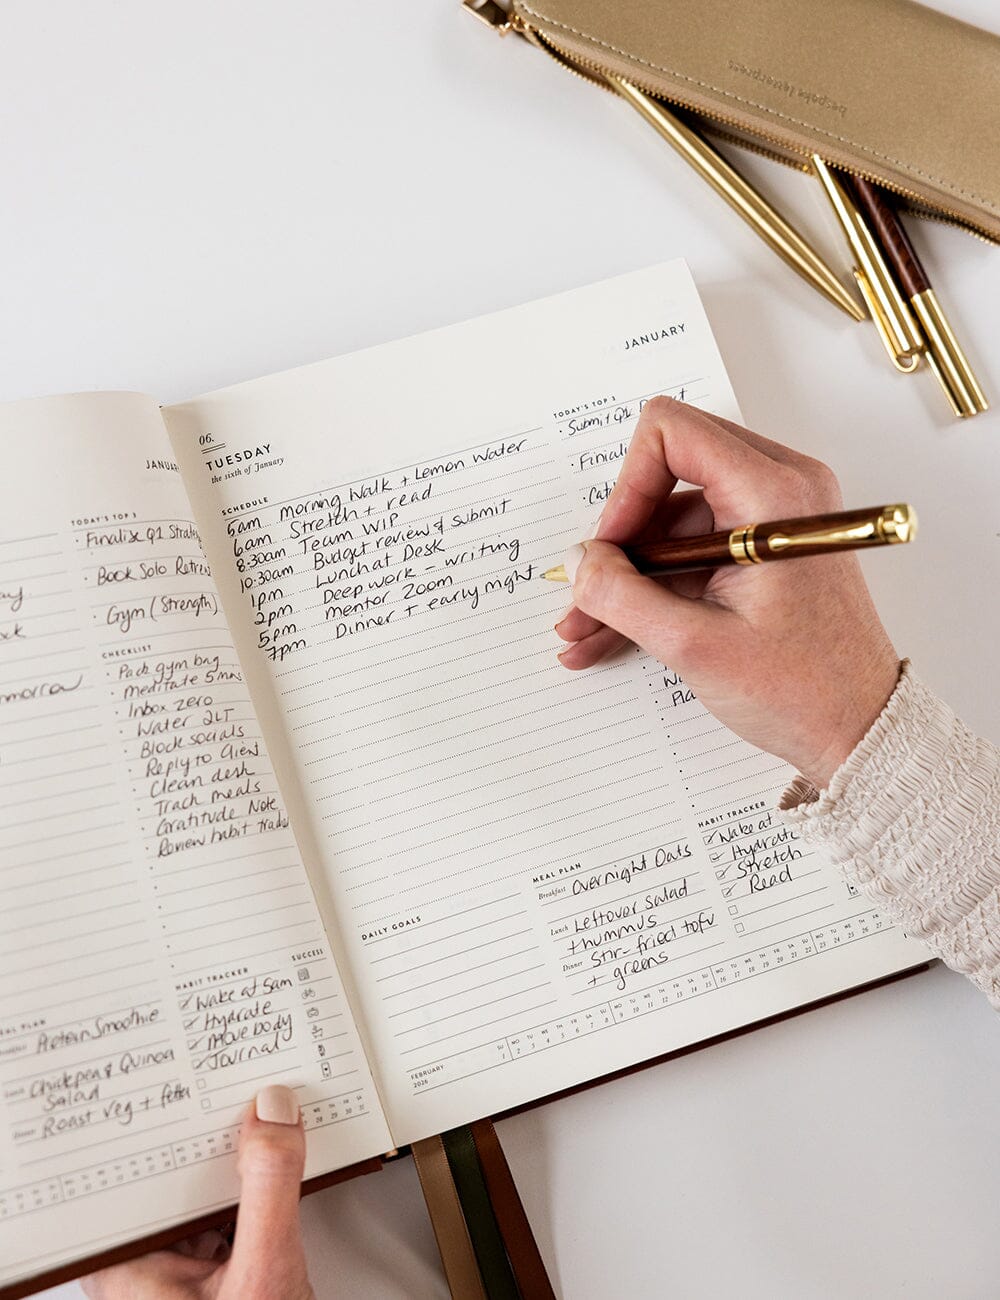 bespoke letterpress
JANUARY
TODAY'S TOP 3
· Finalise Q1
· Book Solo
· Gym (Strength)
CHECKLIST
· Pack gym bag
· meditate 5 mins
· Inbox zero
· Water 2LT
· Block socials
· Reply to Client
· Clean desk
· Track meals
· Gratitude Note
· Review habit
HABIT TRACKER
SUCCESS
Wake at 5am
Hydrate
Move body
Journal
MEAL PLAN
Protein Smoothie
Chickpea & Quinoa
Salad
Dinner Roast veg + fetta
JANUARY
06.
TUESDAY
the sixth of January
SCHEDULE
5am morning Walk + Lemon Water
6am Stretch + read
8.30am Team WIP
10.30am Budget review & submit
1pm Lunch at Desk
2pm Deep work - writing
5pm mentor Zoom
7pm Dinner + early night
TODAY'S TOP 3
· Submit Q1
HABIT TRACKER
Wake at
Hydrate
Stretch
Read
MEAL PLAN
Breakfast Overnight Oats
Lunch Leftover Salad
+ hummus
Dinner Stir-fried tofu
+ greens
DAILY GOALS
FEBRUARY
2026
SU MO TU WE TH FR SA SU MO TU WE TH FR SA SU MO TU WE TH FR SA SU MO TU WE TH FR
1 2 3 4 5 6 7 8 9 10 11 12 13 14 15 16 17 18 19 20 21 22 23 24 25 26 27